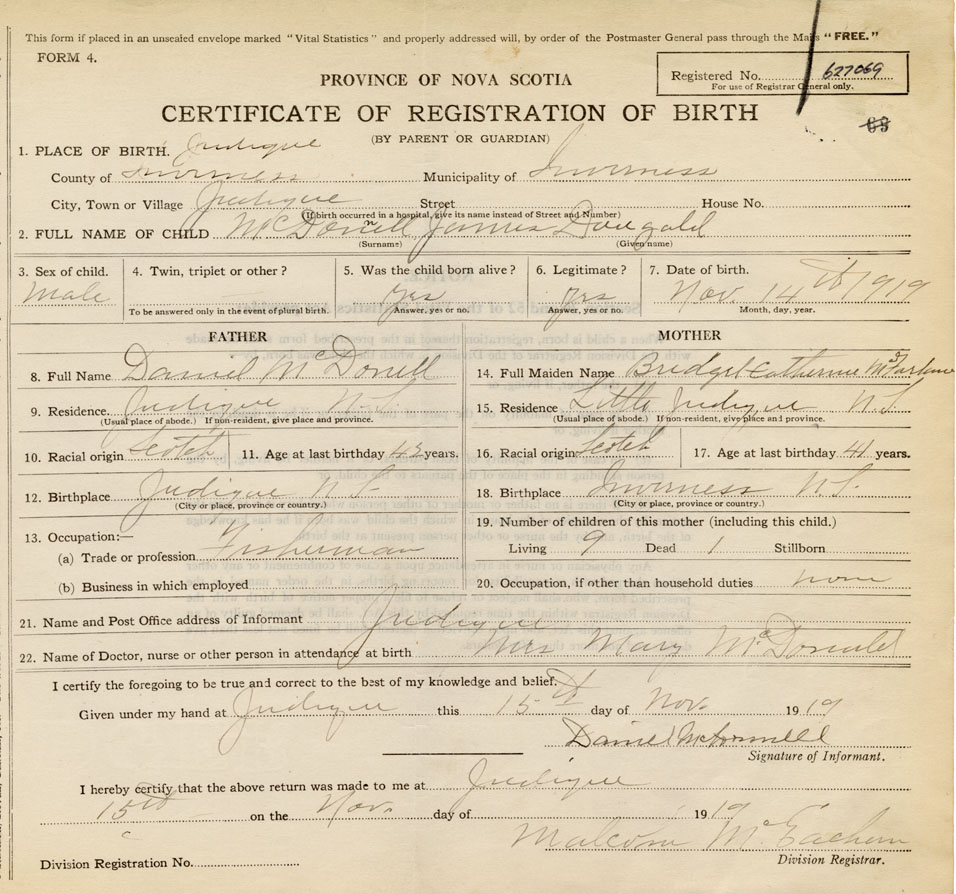 This form if placed in an unsealed envelope marked "Vital Statistics" and properly addressed will, by order of the Postmaster General pass through the Mails "FREE."
FORM 4.
PROVINCE OF NOVA SCOTIA
Registered No. 627069
For use of Registrar General only.
CERTIFICATE OF REGISTRATION OF BIRTH
69
(BY PARENT OR GUARDIAN)
1. PLACE OF BIRTH. Judique
County of Inverness Municipality of Inverness
City, Town or Village Judique Street House No.
(If birth occurred in a hospital, give its name instead of Street and Number)
2. FULL NAME OF CHILD McDonell James Dougald
(Surname) (Given name)
3. Sex of child. 4. Twin, triplet or other? 5. Was the child born alive? 6. Legitimate? 7. Date of birth.
Male yes yes Nov. 14th 1919
To be answered only in the event of plural birth. Answer, yes or no. Answer, yes or no. Month, day, year.
FATHER MOTHER
8. Full Name Daniel McDonell 14. Full Maiden Name Bridget Catherine
9. Residence. Judique N.S. 15. Residence Little Judique N.S.
(Usual place of abode.) If non-resident, give place and province. (Usual place of abode.) If non-resident, give place and province.
10. Racial origin Scotch 11. Age at last birthday 42 years. 16. Racial origin Scotch 17. Age at last birthday 41 years.
12. Birthplace Judique N.S. 18. Birthplace Inverness N.S.
(City or place, province or country.) (City or place, province or country.)
13. Occupation:— 19. Number of children of this mother (including this child.)
(a) Trade or profession Fisherman Living 9 Dead 1 Stillborn
(b) Business in which employed 20. Occupation, if other than household duties none
21. Name and Post Office address of Informant Judique
22. Name of Doctor, nurse or other person in attendance at birth Mrs Mary McDonald
I certify the foregoing to be true and correct to the best of my knowledge and belief.
Given under my hand at Judique this 15th day of Nov. 1919
Daniel McDonnell
Signature of Informant.
I hereby certify that the above return was made to me at Judique
15th on the Nov. day of 1919
Malcom McEachern
Division Registrar.
Division Registration No.